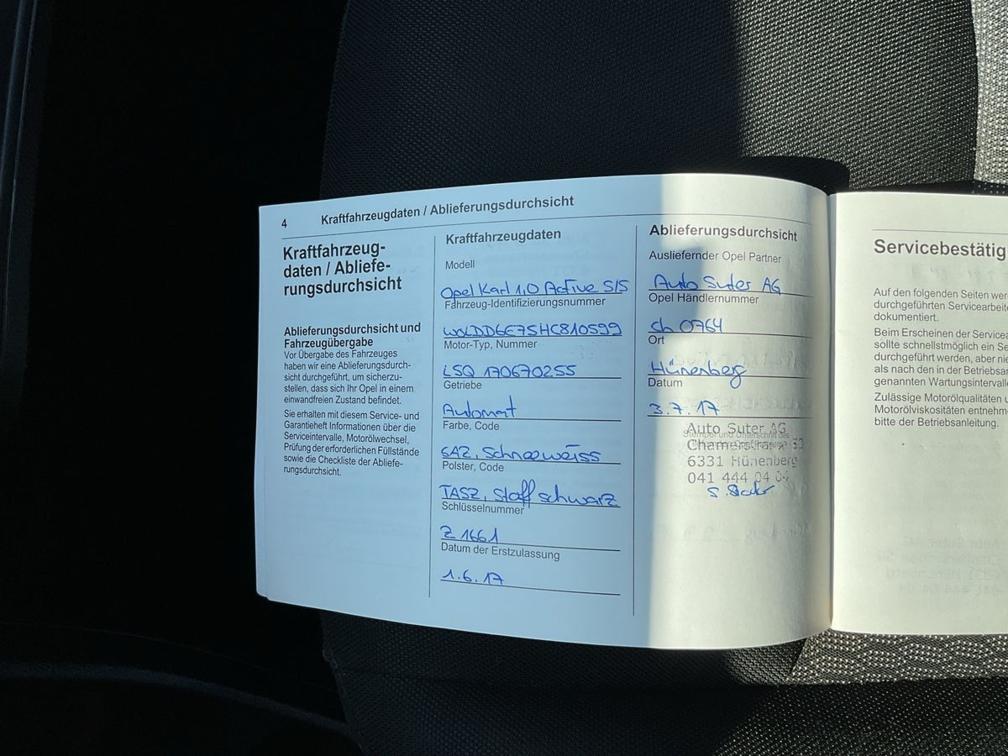 4
Kraftfahrzeugdaten / Ablieferungsdurchsicht
Kraftfahrzeug-
daten / Abliefe-
rungsdurchsicht
Ablieferungsdurchsicht und
Fahrzeugübergabe
Vor Übergabe des Fahrzeuges
haben wir eine Ablieferungsdurch-
sicht durchgeführt, um sicherzu-
stellen, dass sich Ihr Opel in einem
einwandfreien Zustand befindet.
Sie erhalten mit diesem Service- und
Garantieheft Informationen über die
Serviceintervalle, Motorölwechsel,
Prüfung der erforderlichen Füllstände
sowie die Checkliste der Abliefe-
rungsdurchsicht.
Kraftfahrzeugdaten
Modell
Opel Karl 1.0 Active S/S
Fahrzeug-Identifizierungsnummer
W0LDD6E75HC810599
Motor-Typ, Nummer
LSQ 170670255
Getriebe
Automat
Farbe, Code
GAZ, Schneeweiss
Polster, Code
TASZ, Stoff schwarz
Schlüsselnummer
Z 1661
Datum der Erstzulassung
1.6.17
Ablieferungsdurchsicht
Ausliefernder Opel Partner
Auto Suter AG
Opel Händlernummer
Ch 0764
Ort
Hünenberg
Datum
3.7.17
Auto Suter AG
Chamerstrasse
6331 Hünenberg
041 444 04
Servicebestätig
Auf den folgenden Seiten wer
durchgeführten Servicearbeite
dokumentiert.
Beim Erscheinen der Servicea
sollte schnellstmöglich ein Se
durchgeführt werden, aber nie
als nach den in der Betriebsan
genannten Wartungsintervalle
Zulässige Motorölqualitäten u
Motorölviskositäten entnehm
bitte der Betriebsanleitung.